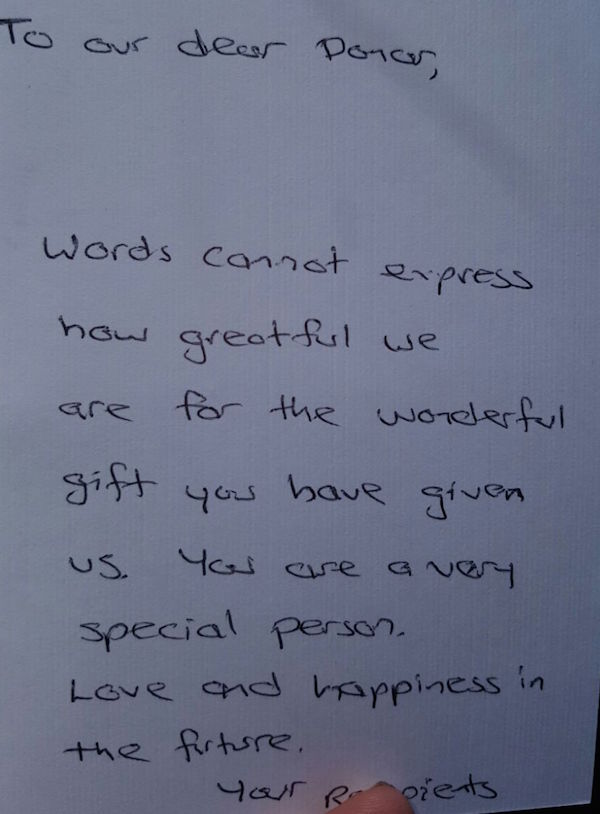 To our dear Donor,
Words cannot express
how greatful we
are for the wonderful
gift you have given
us. You are a very
special person.
Love and happiness in
the future.
Your Recipients